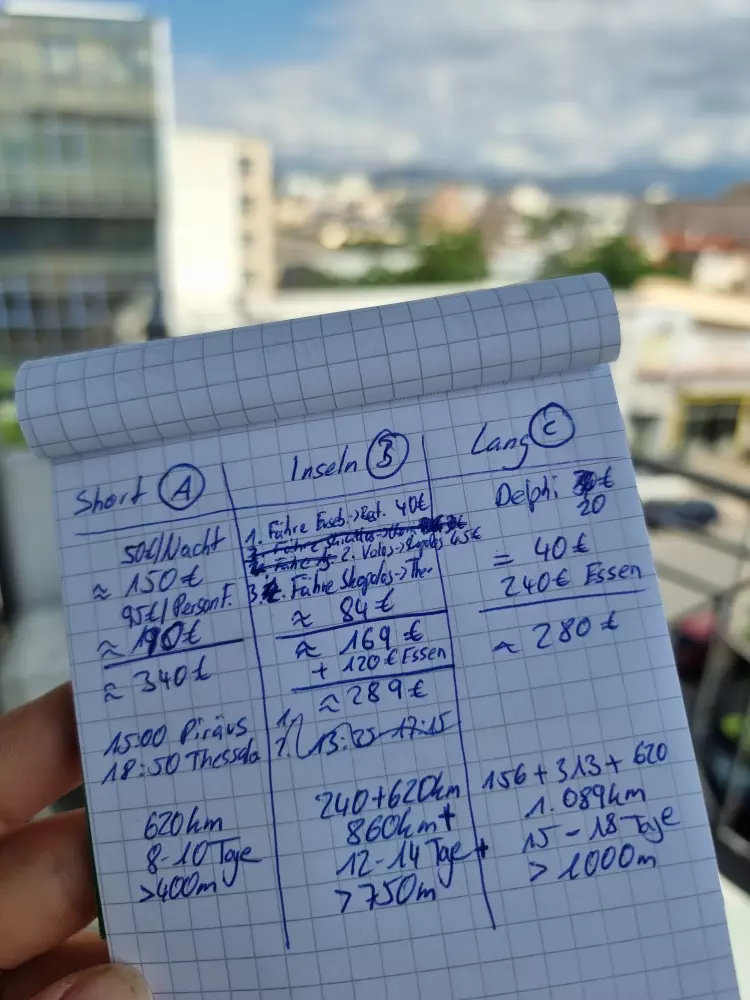 Short A
50€/Nacht
≈ 150€
95€/Person F.
≈ 190€
≈ 340€
15:00 Piräus
18:50 Thessalo
620km
8-10 Tage
>400m
Inseln B
1. Fähre 40€
2. Volos-> 45€
3. Fähre Skopelos->
≈ 84€
≈ 169€
+ 120€ Essen
≈ 289€
1.
2. 13:25-17:15
240+620km
860km+
12-14 Tage+
>750m
Lang C
Delphi €
20
= 40€
240€ Essen
~ 280€
156+313+620
1.089km
15-18 Tage
> 1000m